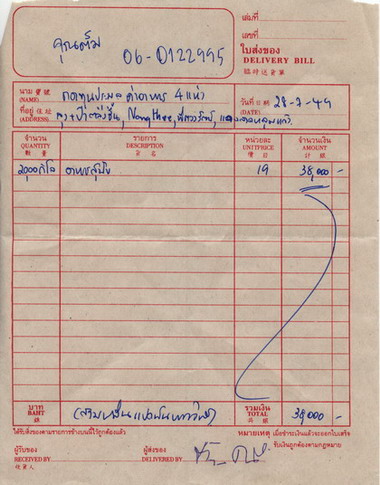 คุณต้ม
06-0122995
เล่มที่
เลขที่
ใบส่งของ
DELIVERY BILL
臨時送貨單
นาม 寶號
(NAME)
4 แห่ง
ที่อยู่ 住址
(ADDRESS)
วันที่ 日期
(DATE)
28-7-49
จำนวน
QUANTITY
數量
รายการ
DESCRIPTION
貨名
หน่วยละ
UNITPRICE
價目
จำนวนเงิน
AMOUNT
計銀
2,000 กิโล
19
38,000 -
บาท
BAHT
銖
(สามหมื่นแปดพันบาทถ้วน)
รวมเงิน
TOTAL
共銀
38,000 -
ได้รับสิ่งของตามรายการข้างบนนี้ไว้ถูกต้องแล้ว
หมายเหตุ เมื่อชำระเงินแล้วจะออกใบเสร็จ
รับเงินถูกต้องตามกฎหมาย
ผู้รับของ
RECEIVED BY
收貨人
ผู้ส่งของ
DELIVERED BY